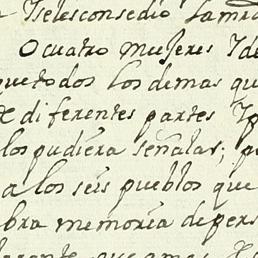 Yelesconsedio lamra
O cuatro mujeres Yde
quetodos los demas qu
de diferentes partes Yp
los pudiera señalar, po
a los seis pueblos que
bra memoria depers